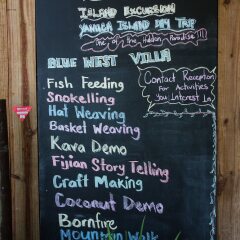 ISLAND EXCURSION
YANUCA ISLAND DAY TRIP
One of the Hidden Paradise!!!
BLUE WEST VILLA
Fish Feeding
Snokelling
Hat Weaving
Basket Weaving
Kava Demo
Fijian Story Telling
Craft Making
Coconut Demo
Bornfire
Mountain Walk
Contact Reception
For Activities
You Interest In